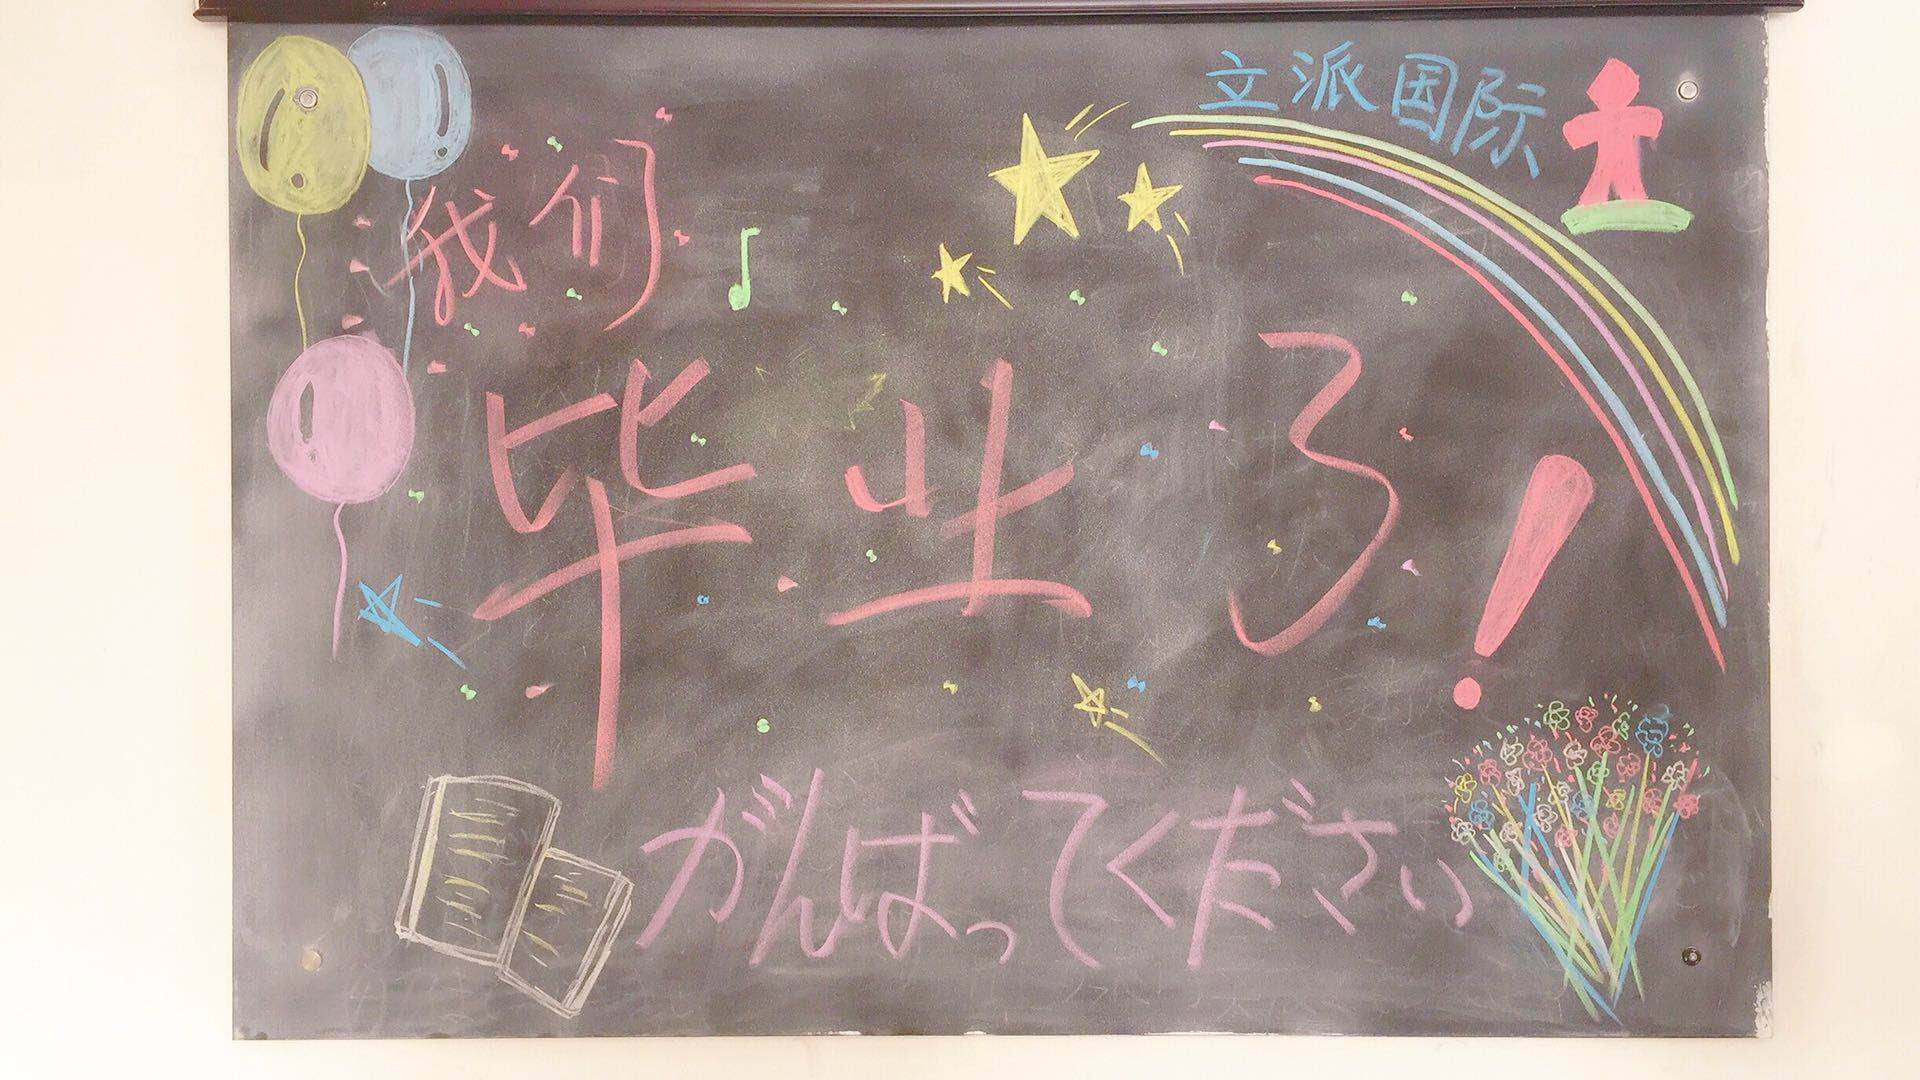 立派国际
我们
毕业了!
がんばってください